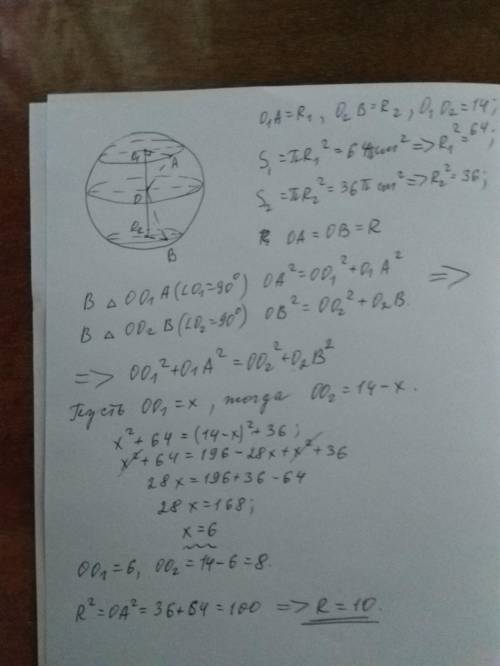 O₁A=R₁, O₂B=R₂, O₁O₂=14;
S₁=πR₁²=64π см² => R₁²=64;
S₂=πR₂²=36π см² => R₂²=36;
OA=OB=R
O₁
A
O
O₂
B
В △ OO₁A (∠O₁=90°) OA²=OO₁²+O₁A²
=>
В △ OO₂B (∠O₂=90°) OB²=OO₂²+O₂B.
=> OO₁²+O₁A²=OO₂²+O₂B²
Пусть OO₁=x, тогда OO₂=14-x.
x²+64=(14-x)²+36;
x²+64=196-28x+x²+36
28x=196+36-64
28x=168;
x=6
OO₁=6, OO₂=14-6=8.
R²=OA²=36+64=100 => R=10.